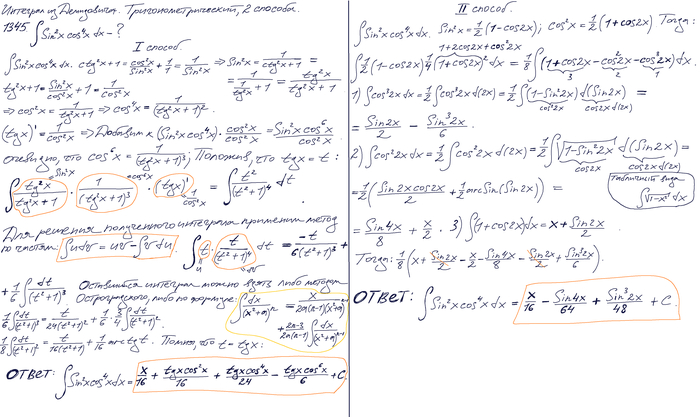 Интеграл из Демидовича. Тригонометрический, 2 способа.
1345 ∫Sin²x cos⁴x dx - ?
I способ
∫Sin²x cos⁴x dx. ctg²x+1 = cos²x/Sin²x + 1/1 = 1/Sin²x ⇒ Sin²x = 1/(ctg²x+1) =
tg²x+1 = Sin²x/cos²x + 1 = 1/cos²x = 1/(1/tg²x + 1) = tg²x/(tg²x+1)
⇒ cos²x = 1/(tg²x+1) ⇒ cos⁴x = 1/(tg²x+1)².
(tgx)' = 1/cos²x ⇒ Добавим к (Sin²x cos⁴x) · cos²x/cos²x = Sin²x cos⁶x/cos²x
очевидно, что cos⁶x = 1/(tg²x+1)³; Положив, что tgx = t:
∫ tg²x/(tg²x+1) · 1/(tg²x+1)³ · (tgx)' = ∫ t²/(t²+1)⁴ dt.
Для решения полученного интеграла применим метод
по частям: ∫udv = uv - ∫vdu. ∫ t · t/(t²+1)⁴ dt = -t/6(t²+1)³ +
+ 1/6 ∫ dt/(t²+1)³ Оставшийся интеграл можно взять либо методом
Остроградского, либо по формуле: ∫ dx/(x²+a)ⁿ = x/2a(n-1)(x²+a)ⁿ⁻¹ + (2n-3)/2a(n-1) ∫ dx/(x²+a)ⁿ⁻¹
1/6 ∫ dt/(t²+1)³ = t/24(t²+1)² + 1/6 · 3/4 ∫ dt/(t²+1)².
1/8 ∫ dt/(t²+1)² = t/16(t²+1) + 1/16 arctgt. Помню, что t - tgx:
ОТВЕТ: ∫Sin²x cos⁴x dx = x/16 + tgx cos²x/16 + tgx cos⁴x/24 - tgx cos⁶x/6 + C.
II способ.
∫Sin²x cos⁴x dx. Sin²x = 1/2(1-cos2x); cos²x = 1/2(1+cos2x) Тогда:
1+2cos2x+cos²2x
∫ 1/2 (1-cos2x) 1/4 (1+cos2x)² dx = 1/8 ∫(1+cos2x - cos²2x - cos³2x) dx
3 2 1
1) ∫cos³2x dx = 1/2 ∫cos³2x d(2x) = 1/2 ∫(1-Sin²2x) d(Sin2x) =
cos²2x cos2x d(2x)
= Sin2x/2 - Sin³2x/6.
2) ∫cos²2x dx = 1/2 ∫cos²2x d(2x) = 1/2 ∫√(1-Sin²2x) d(Sin2x) =
cos2x cos2x d(2x)
= 1/2 (Sin2x cos2x/2 + 1/2 arcSin(Sin2x)) =
Табличный вида ∫√(1-x²) dx
= Sin4x/8 + x/2. 3) ∫(1+cos2x)dx = x + Sin2x/2
Тогда: 1/8 (x + Sin2x/2 - x/2 - Sin4x/8 - Sin2x/2 + Sin³2x/6).
ОТВЕТ: ∫Sin²x cos⁴x dx = x/16 - Sin4x/64 + Sin³2x/48 + C.